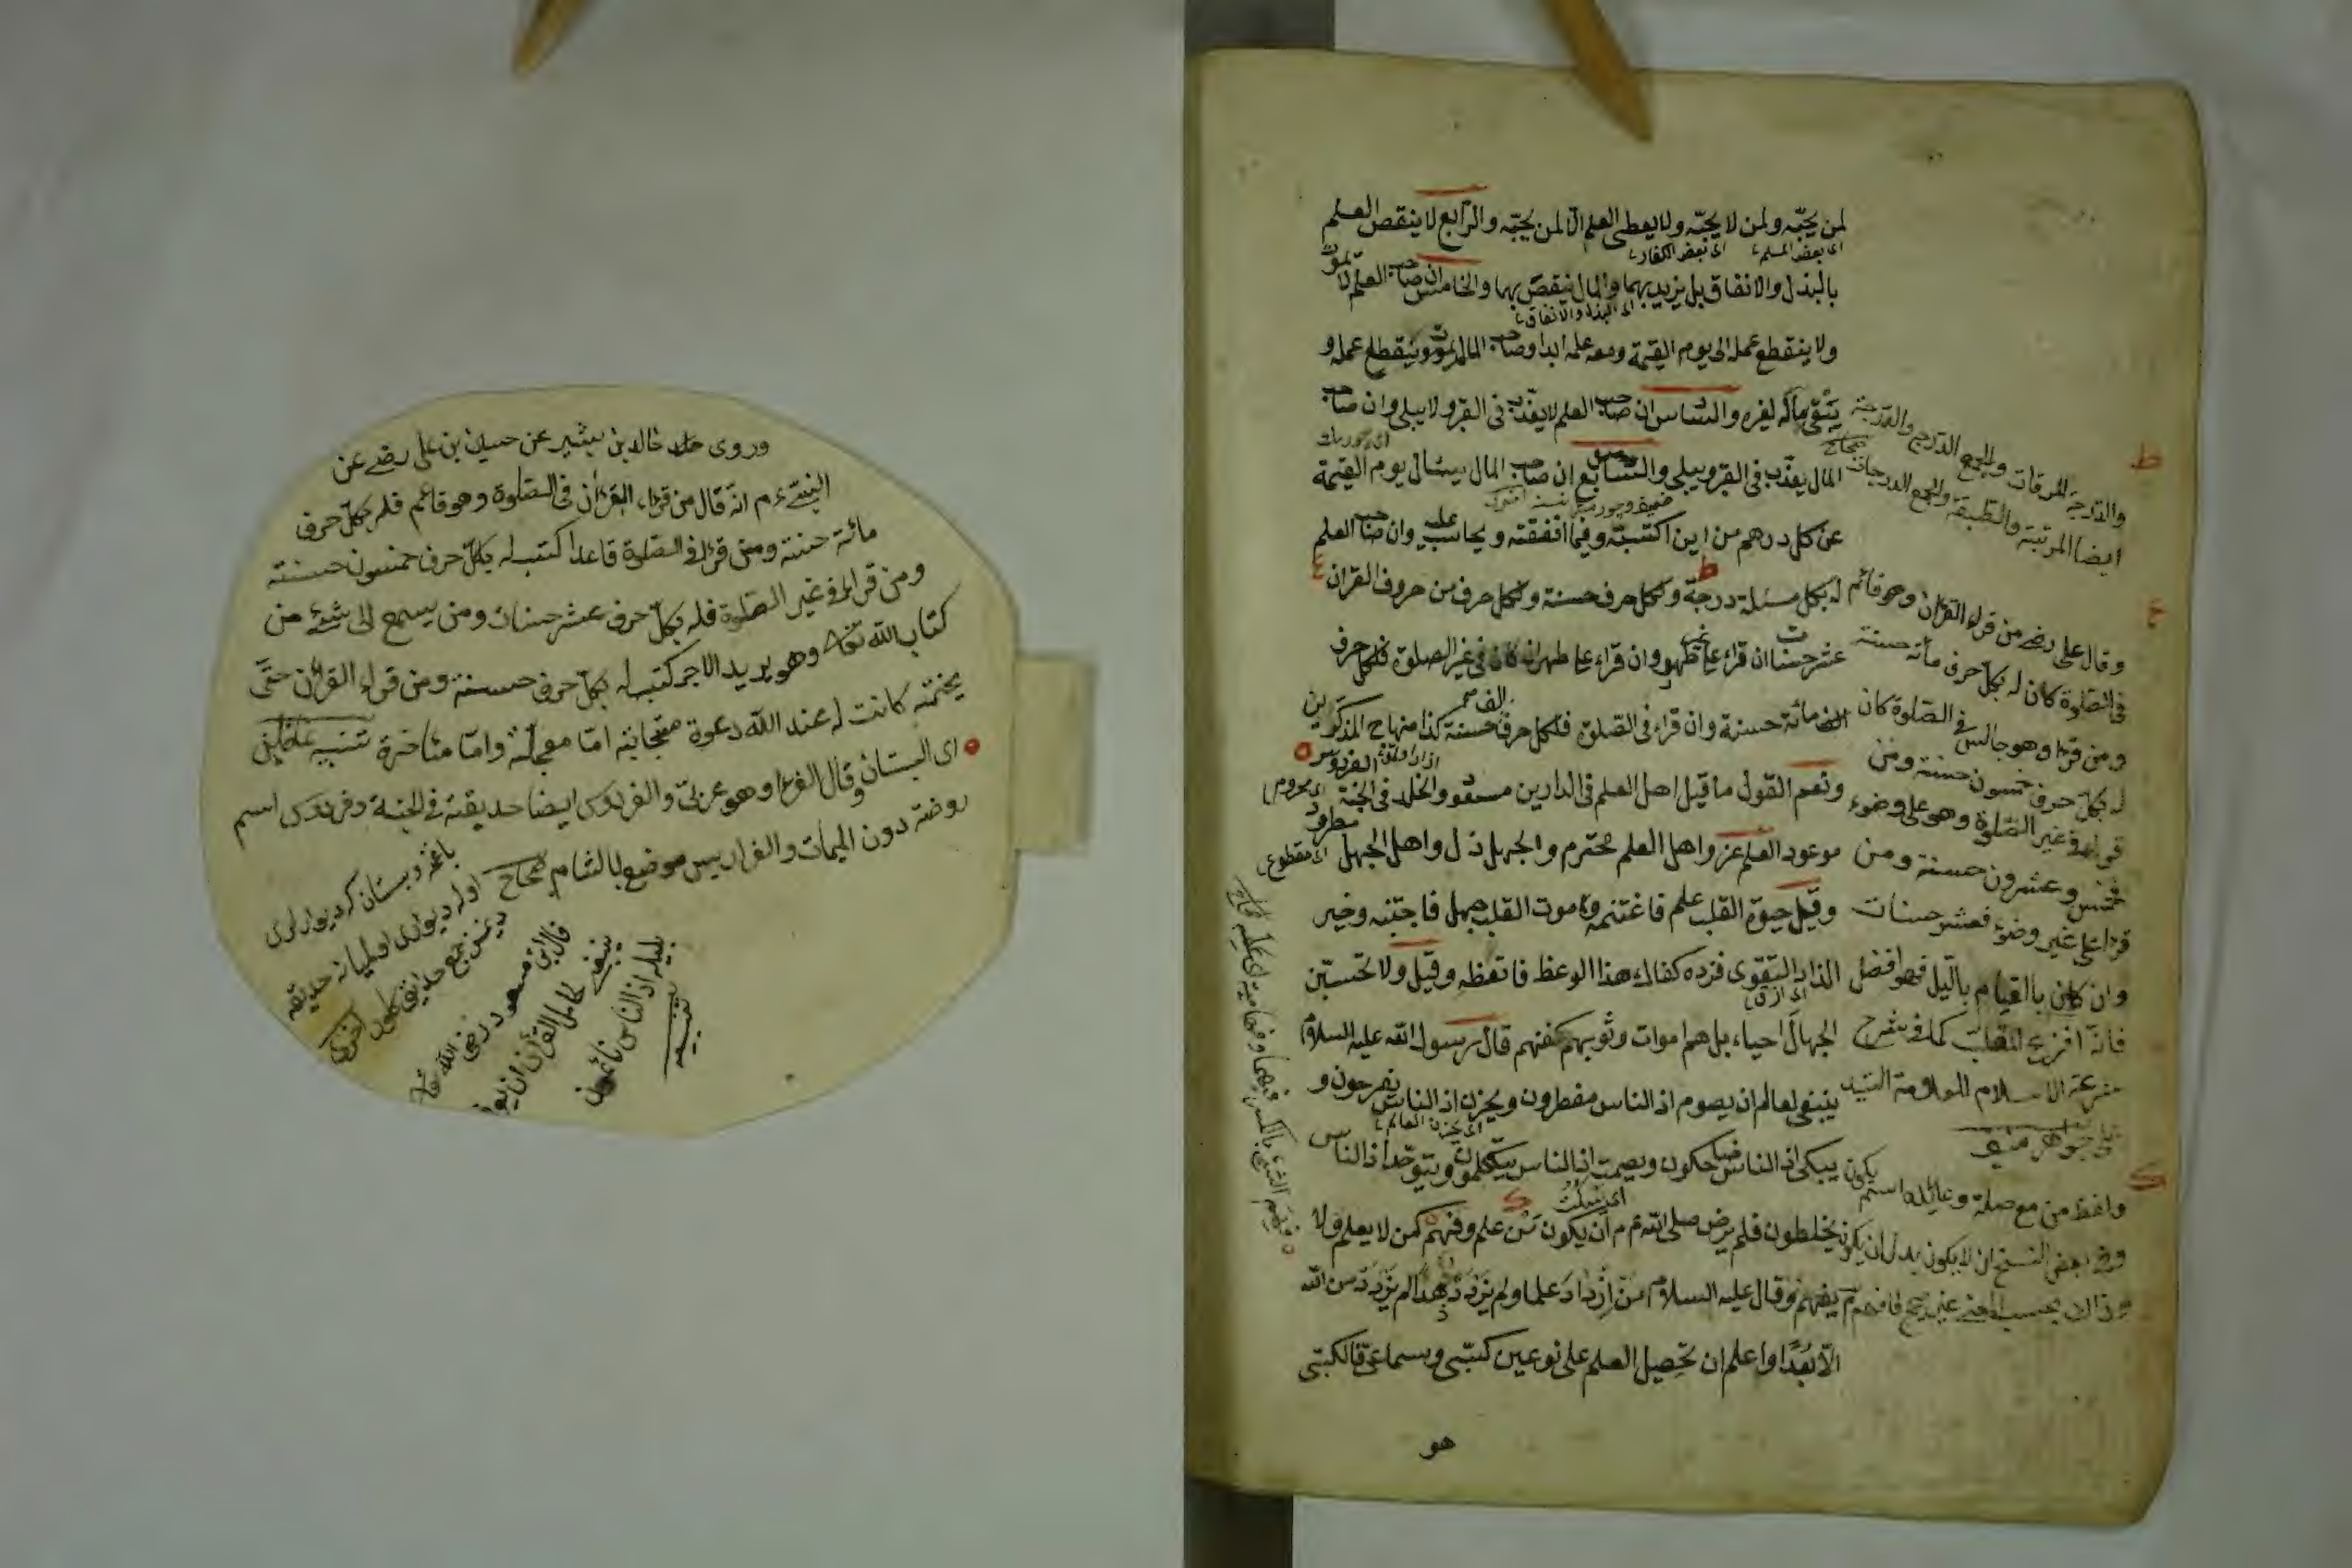 لمن يحبّه ولمن لا يحبّه ولا يعطى العلم الّا لمن يحبّه والرّابع لا ينقص العلم
اى بعض المسلم اى بعض الكفار
بالبذل والانفاق بل يزيد بهما والمال ينقص بهما والخامس ان صاحب العلم لا يموت
اى البذل والانفاق
ولا ينقطع عمله الى يوم القيمة ومعه علمه ابدا وصاحب المال يموت وينقطع عمله و
يبقى ماله لغيره والسّادس ان صاحب العلم لا يعذّب فى القبر ولا يبلى وان صاحب
المال يعذّب فى القبر ويبلى والسّابع ان صاحب المال يسئال يوم القيمة
عن كل درهم من اين اكتسبته وفيما انفقته ويحاسب عليه وان صاحب العلم
له بكل مسئلة درجة وكل حرف حسنة وكل حرف من حروف القران
عشر حسنات ان قراء على غير طهر وان قراء على طهر ان كان فى غير الصلوة فلكل حرف
مائة حسنة وان قراء فى الصّلوة فلكل حرف الف حسنة كذا منهاج المذكّرين
ونعم القول ما قيل اهل العلم فى الدارين مسعود والخلد فى الجنة الفردوس
موعود العلم عز واهل العلم محترم والجهل ذل واهل الجهل مطرود
وقيل حيوة القلب علم فاغتنمه وموت القلب جهل فاجتنبه وخير
الذاد التقوى فزده كفاك هذا الوعظ فاتعظه وقيل ولا تحسبنّ
الجهال احياء بل هم اموات وثوبهم كفنهم قال رسول الله عليه السلام
ينبغى لعالم ان يصوم اذ الناس مفطرون ويحزن اذ الناس يفرحون و
اى يحزن العالم
يبكى اذ الناس ضاحكون ويصمت اذ الناس يتكلمون ويتوحّد اذ الناس
اى يسكت
يخلطون فلم يرض صلى الله ء م ان يكون من علم وفهم كمن لا يعلم ولا
يفهم وقال عليه السلام من ازداد علما ولم يزدد هدا لم يزدد من الله
الّا بعدا واعلم ان تحصيل العلم على نوعين كسبّى وسماعىّ فالكسبّى
هو
والدرجة المرقات والجمع الدرج والدّرجة
ايضا المرتبة والطبقة والجمع الدرجات صحاح
وقال على رضه من قراء القران وهو قائم
فى الصّلوة كان له بكلّ حرف مأئة حسنة
ومن قراء وهو جالس فى الصّلوة كان
له بكلّ حرف خمسون حسنة ومن
قراء فى غير الصّلوة وهو على وضوء
فخمس وعشرون حسنة ومن
قراء على غير وضوء فعشر حسنات
وان كان بالقيام باللّيل فهو افضل
فانّه افزع للقلب كما فى شرح
شرعة الاسلام للعلامة السّيد
على
ولفظ من مع صلة وعائده اسم يكون
وفى بعض النسخ ان لا يكون بدل ان يكون
وروى خالد بن بشير عن حسين بن على رضے عن
النبى ء م انّه قال من قراء القرأن فى الصّلوة وهو قائم فله بكلّ حرف
مائة حسنة ومن قراء فى الصّلوة قاعدا كتب له بكلّ حرف خمسون حسنة
ومن قراء فى غير الصّلوة فله بكلّ حرف عشر حسنات ومن يسمع الى شئ من
كتاب الله تعالى وهو يريد الاجر كتب له بكلّ حرف حسنة ومن قراء القرأن حتّى
يختمه كانت له عند الله دعوة مستجابة امّا معجلة وامّا متأخرة تنبيه
اى البستان وقال الفراء وهو عربىّ والفردوس ايضا حديقة فى الجنة وفردوس اسم
روضة دون اليمامة والفراديس موضع بالشام صحاح
باغچه وبستان كه ديوارلرى
اوله ديوارى اولميانه حديقه
ديمز جمع حدائق كلور اخرى
قال ابن مسعود رضى الله
ينبغى لحامل القرأن ان يعرف
بليله اذ الناس نائمون
تنبيه